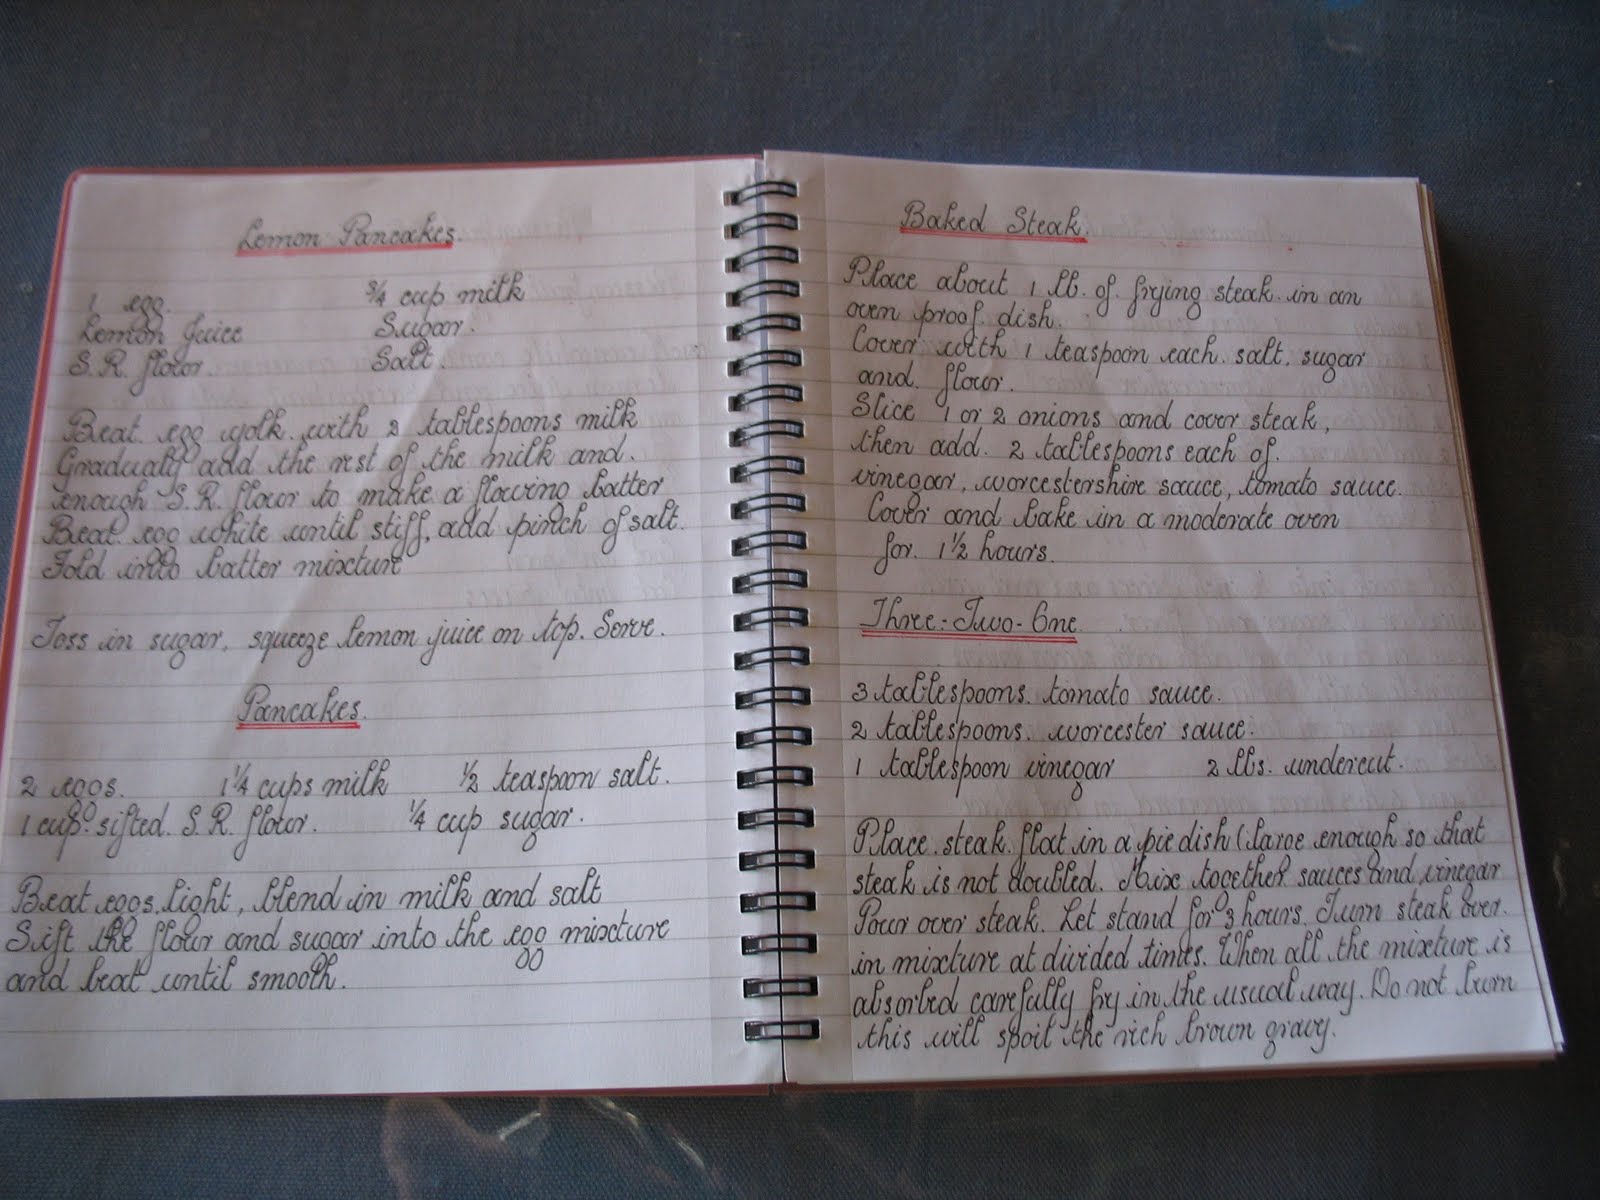 Lemon Pancakes.
1 egg. 3/4 cup milk
Lemon Juice Sugar.
S. R. flour. Salt.
Beat egg yolk with 2 tablespoons milk
Gradually add the rest of the milk and
enough S. R. flour to make a flowing batter
Beat egg white until stiff, add pinch of salt.
Fold into batter mixture
Toss in sugar, squeeze lemon juice on top. Serve.
Pancakes.
2 eggs. 1 1/4 cups milk 1/2 teaspoon salt.
1 cup sifted S. R. flour. 1/4 cup sugar.
Beat eggs light, blend in milk and salt
Sift the flour and sugar into the egg mixture
and beat until smooth.
Baked Steak.
Place about 1 lb. of frying steak in an
oven proof dish.
Cover with 1 teaspoon each salt. sugar
and flour.
Slice 1 or 2 onions and cover steak,
then add 2 tablespoons each of
vinegar, worcestershire sauce, tomato sauce.
Cover and bake in a moderate oven
for 1 1/2 hours.
Three-Two-One
3 tablespoons tomato sauce.
2 tablespoons worcester sauce.
1 tablespoon vinegar 2 lbs. undercut.
Place steak flat in a pie dish (large enough so that
steak is not doubled. Mix together sauces and vinegar
Pour over steak. Let stand for 3 hours. Turn steak over
in mixture at divided times. When all the mixture is
absorbed carefully fry in the usual way. Do not burn
this will spoil the rich brown gravy.